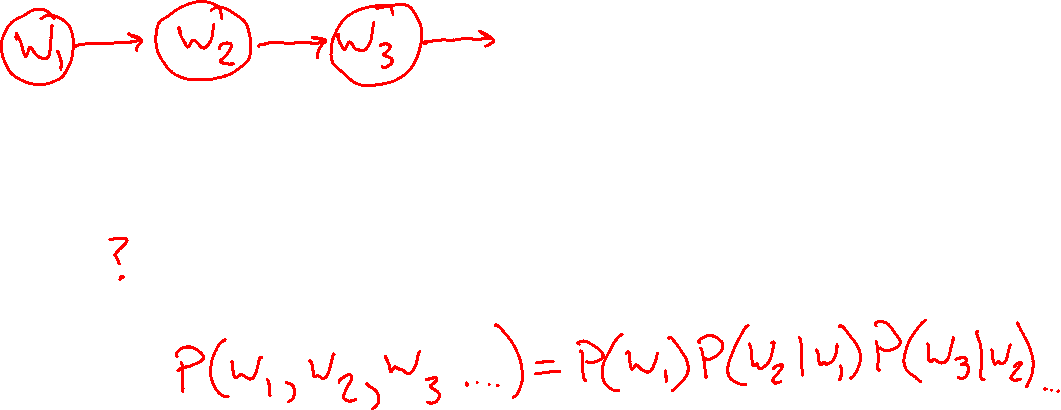 W₁ → W₂ → W₃ →
?
P(W₁, W₂, W₃ ....) = P(W₁) P(W₂|W₁) P(W₃|W₂)...